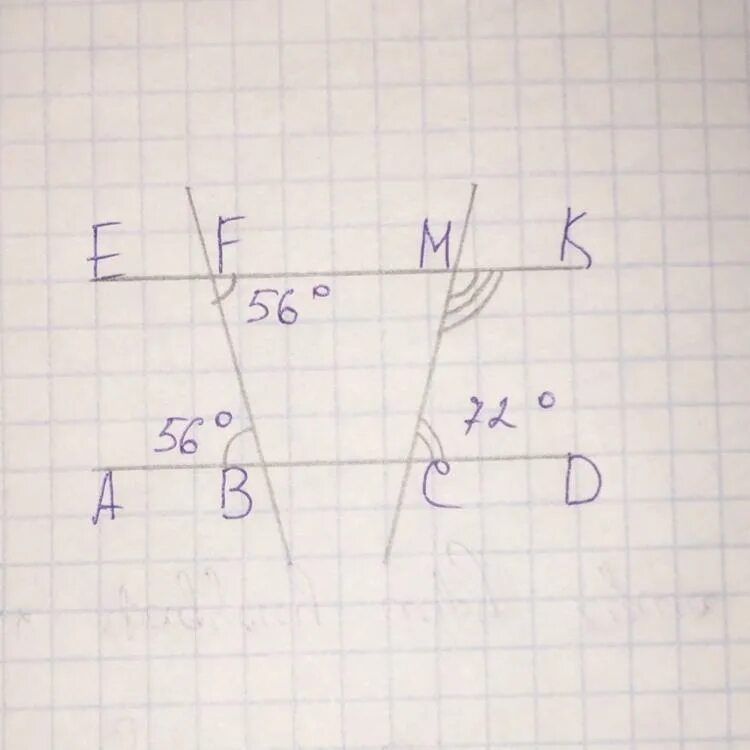 E F M K
56°
56° 72°
A B C D